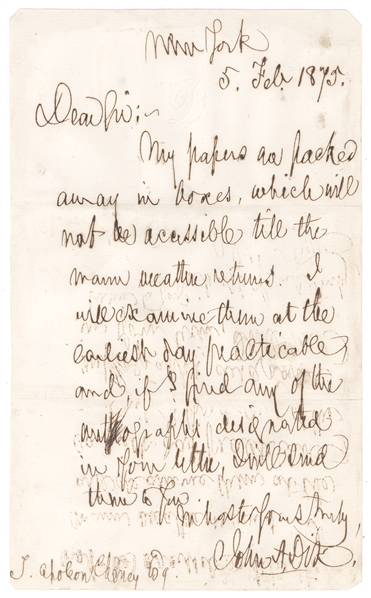 New York
5. Feb. 1875.
Dear Sir:
My papers are packed
away in boxes, which will
not be accessible till the
warm weather returns. I
will examine them at the
earliest day practicable,
and, if I find any of the
autographs designated
in your letter, I will send
them to you.
In haste yours truly,
John A. Dix.
Esq.